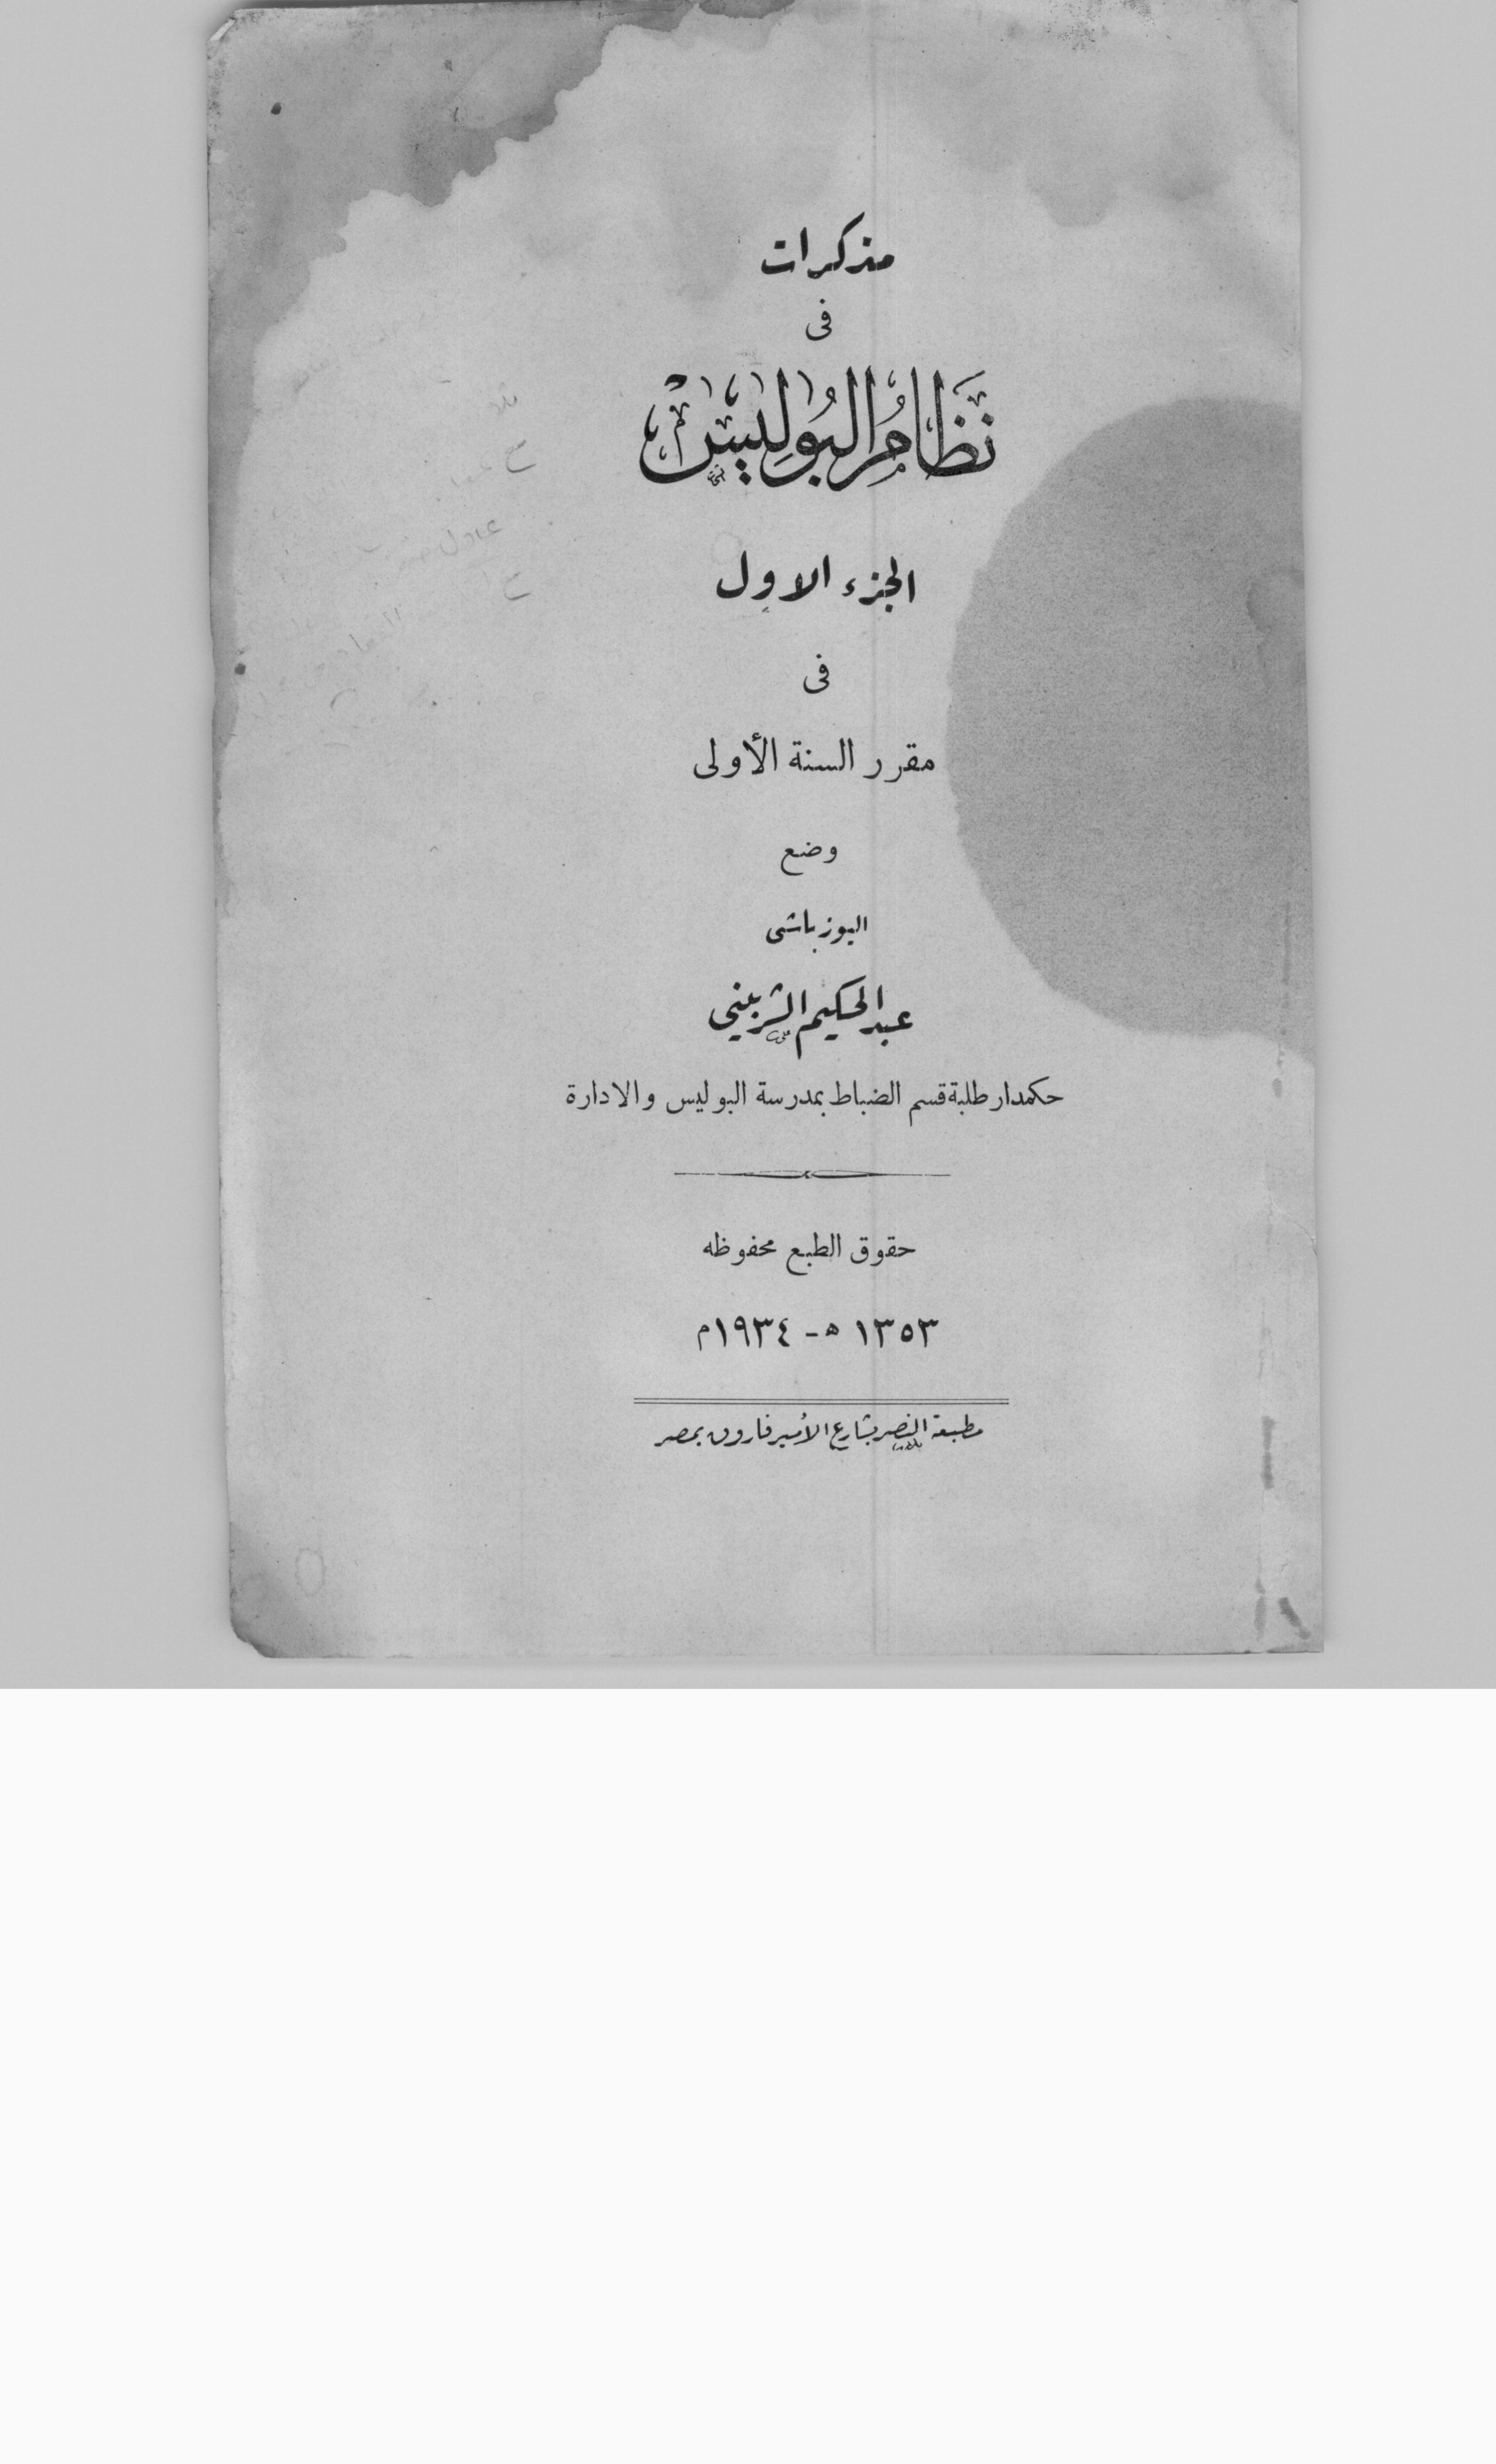 مذكرات
فى
نظام البوليس
الجزء الاول
فى
مقرر السنة الأولى
وضع
اليوزباشى
عبد الحكيم الشربيني
حكمدار طلبة قسم الضباط بمدرسة البوليس والادارة
حقوق الطبع محفوظه
١٣٥٣ هـ - ١٩٣٤ م
مطبعة النصر بشارع الأمير فاروق بمصر